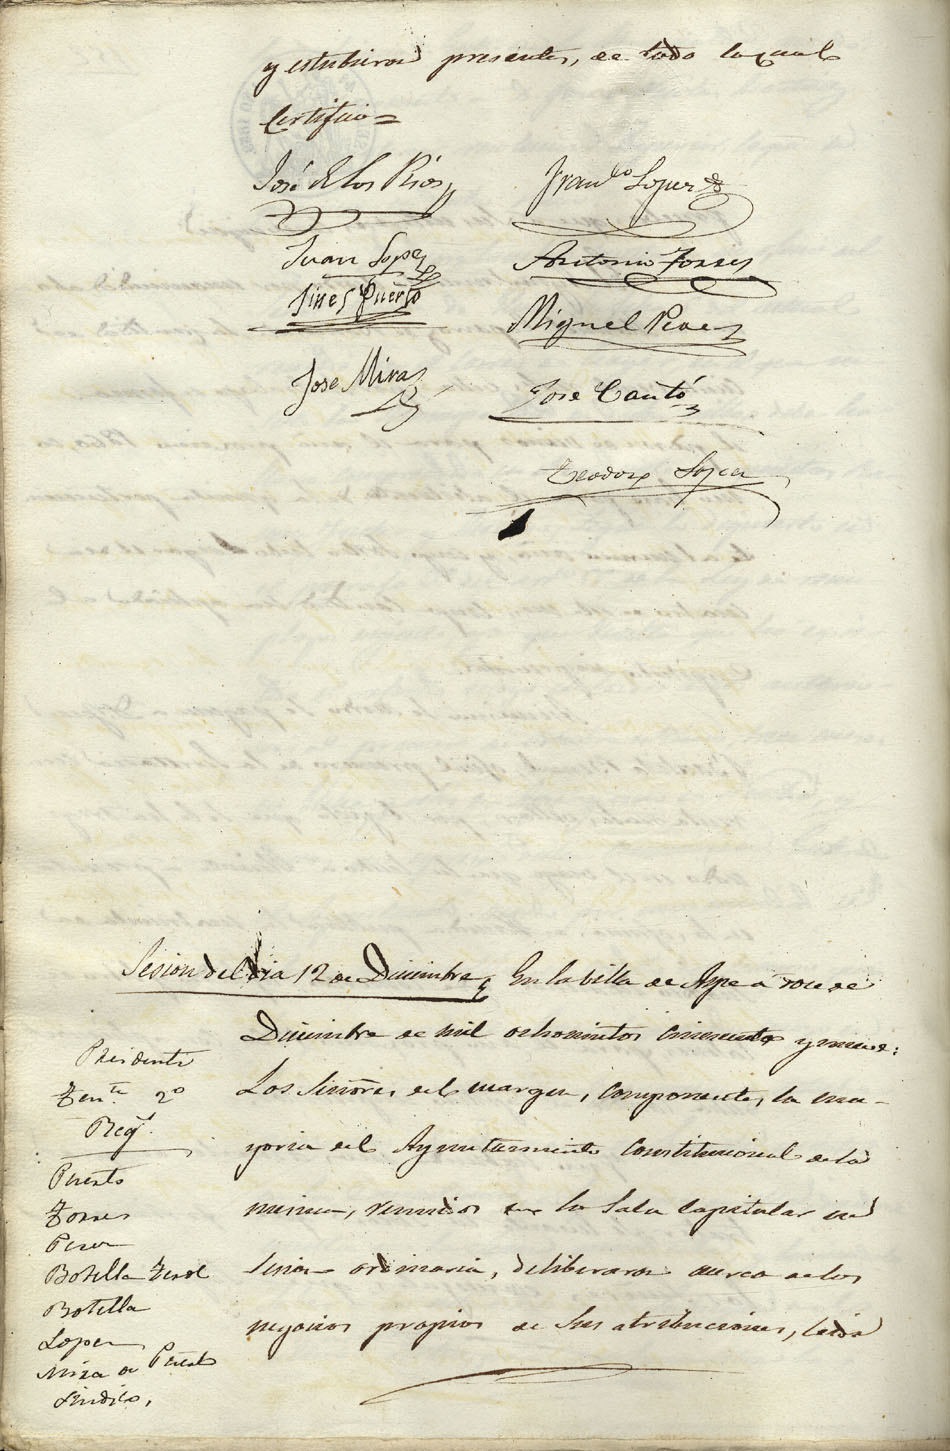 y estubieron presentes, de todo lo qual
Certifico =
José de los Rios
Fran.co Lopez
Juan Lopez
Antonio Torres
Jines Puerto
Miguel Perez
Jose Mira
Jose Cantó
Teodoro Lopez
Sesion del dia 12 de Diciembre
En la villa de Aspe a doce de
Diciembre de mil ochocientos cincuenta y nueve:
Los Señores del margen, componentes, la ma-
yoria del Ayuntamiento Constitucional de la
misma, reunidos en la Sala Capitular en
sesion ordinaria, deliberaron acerca de los
negocios propios de sus atribuciones, leida
Presidente
Ten.te 2º
Reg.s
Puerto
Torres
Perez
Botella
Botella
Lopez
Mira
Puerto
Sindico.